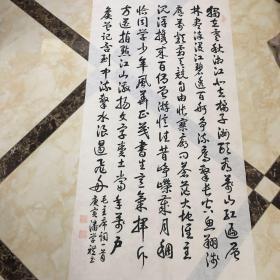 獨立寒秋湘江北去橘子洲頭看萬山紅遍層
林盡染漫江碧透百舸争流鷹擊長空魚翔淺
底萬類霜天競自由悵寥廓問蒼茫大地誰主
沉浮攜來百侣曾游憶往昔崢嶸歲月稠
恰同學少年風華正茂書生意氣揮斥
方遒指點江山激揚文字糞土當年萬户
侯曾記否到中流擊水浪遏飛舟
毛主席詞一首
庚寅潘學禮書